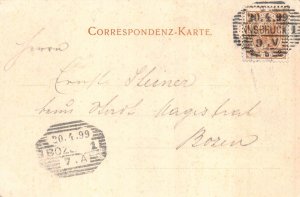 CORRESPONDENZ-KARTE.
20.4.99
INNSBRUCK 1
9.V
Herrn
Ernst Steiner
Magistrat
Bozen
20.4.99
BOZEN 1
7.A